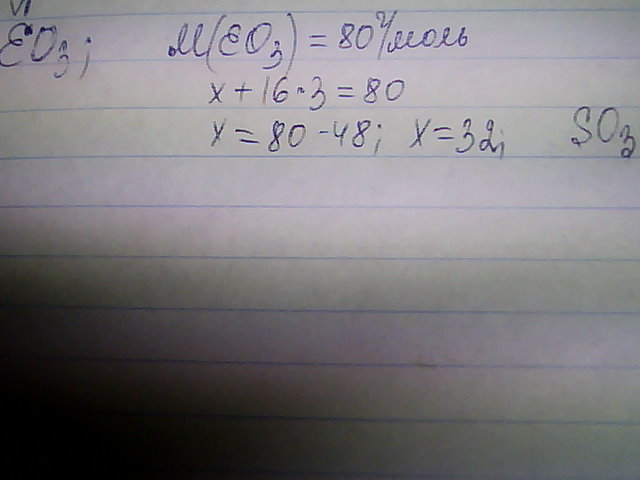 VI
ЭO₃; M(ЭO₃) = 80 г/моль
x + 16·3 = 80
x = 80 - 48; x = 32; SO₃